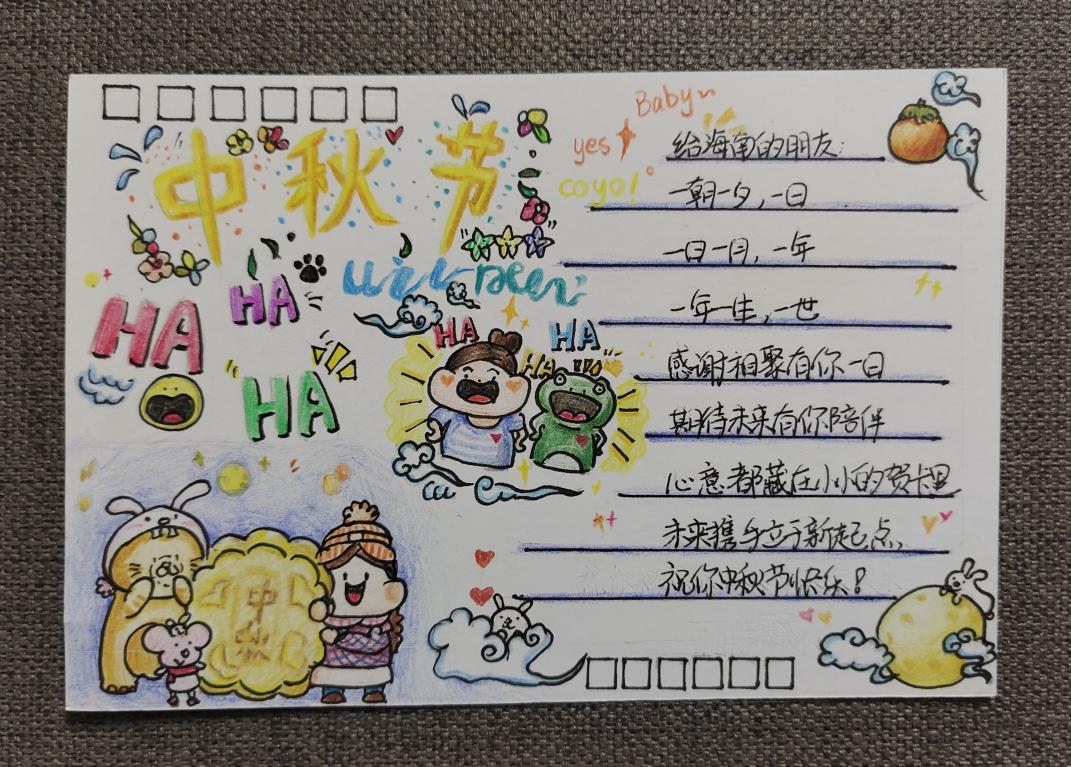 中秋节
HA
HA
HA
HA
HA
HA
中
Baby
yes
coyo!
给海南的朋友:
一朝一夕,一日
一日一月,一年
一年一生,一世
感谢相聚有你一日
期待未来有你陪伴
心意都藏在小小的贺卡里
未来携手立于新起点
祝你中秋节快乐!